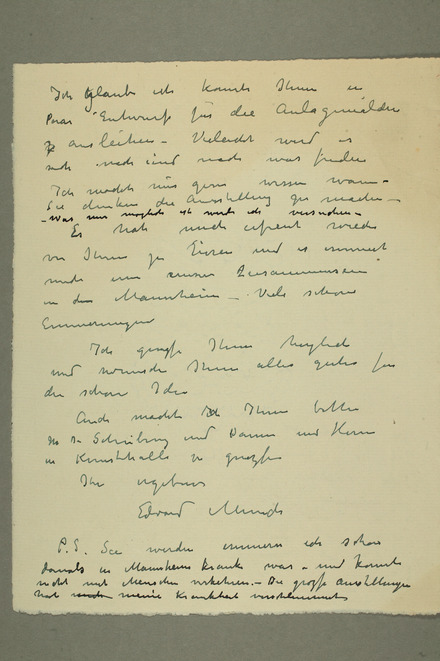 Ich glaube ich konnte Ihnen ein
Paar Entwurfe für die Aulagemälde
ausleihen – Vieleicht wird es
sich nach und nach was finden
Ich möchte nur gern wissen wann –
Sie denken die Ausstellung zu machen –
– Was mir moglich ist werde ich versuchen –
Es hat mich erfreut wieder
von Ihnen zu hören und es erinnert
mich an unser Zusammensein
in Mannheim – Viele schöne
Erinnerungen
Ich grüsse Ihnen herzlich
und wünsche Ihnen alles gutes für
die schöne Idee
Auch möchte Ich Ihnen bitte
und Damen und Herrn
in Kunsthalle zu grüssen
Ihr ergebener
Edvard Munch
P.S. Sie werden erinnern ich schon
damals in Mannheim krank war – und konnte
nicht mit Menschen verkehren. – Die grosse Ausstellungen
hat meine Krankheit verschlimmert